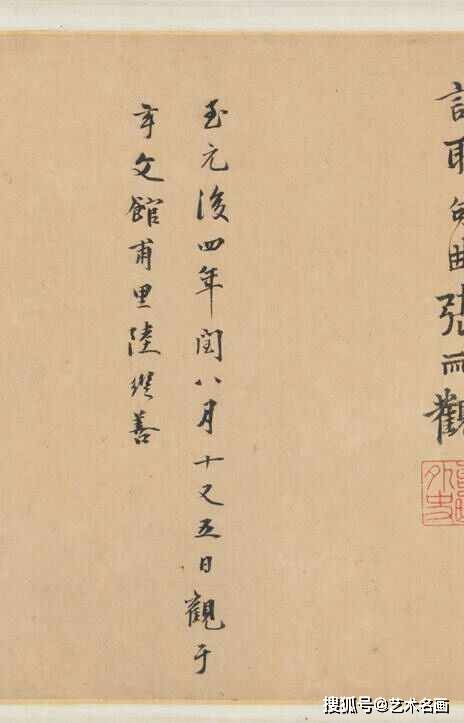 句曲張雨觀
至元後四年閏八月十又五日觀于
文館甫里陸繼善
搜狐号@艺术名画